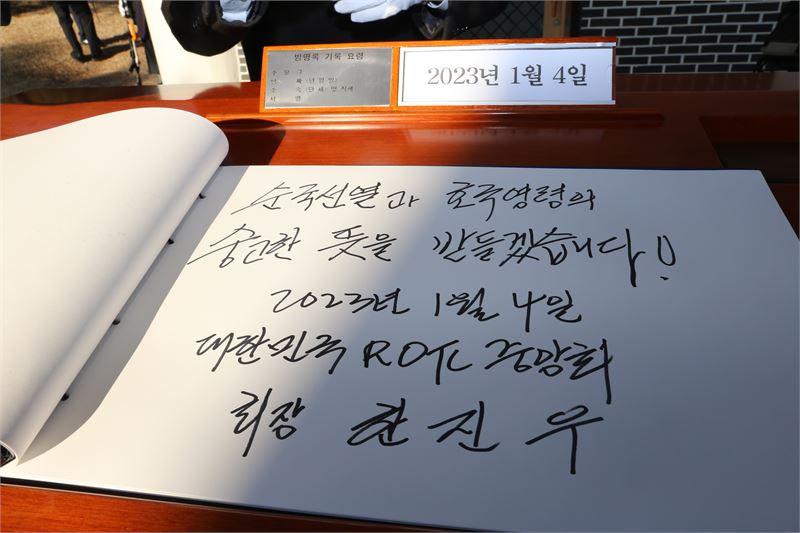 방명록 기록 요령
2023년 1월 4일
순국선열과 호국영령의
숭고한 뜻을 받들겠습니다!
2023년 1월 4일
대한민국 ROTC 중앙회
회장 한진우